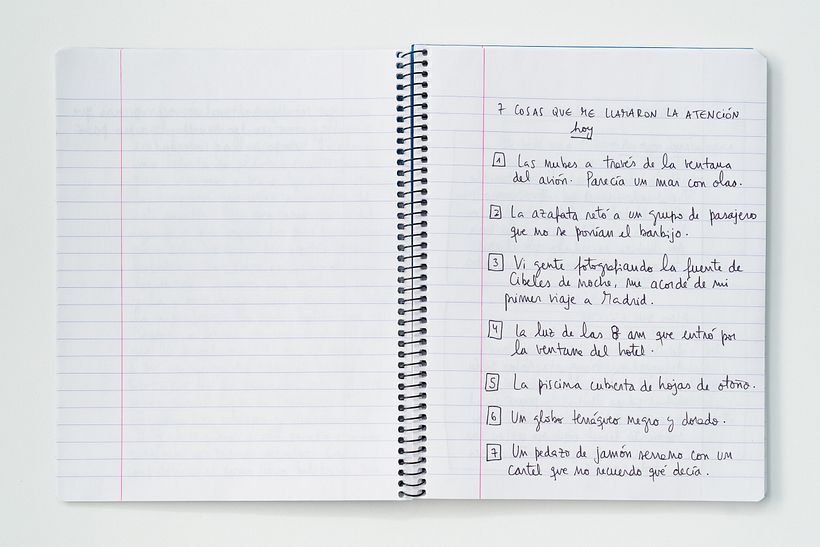 7 COSAS QUE ME LLAMARON LA ATENCIÓN
hoy
1 Las nubes a través de la ventana
del avión. Parecía un mar con olas.
2 La azafata retó a un grupo de pasajero
que no se ponían el barbijo.
3 Vi gente fotografiando la fuente de
Cibeles de noche, me acordé de mi
primer viaje a Madrid.
4 La luz de las 8 am que entró por
la ventana del hotel.
5 La piscina cubierta de hojas de otoño.
6 Un globo terráqueo negro y dorado.
7 Un pedazo de jamón serrano con un
cartel que no recuerdo qué decía.